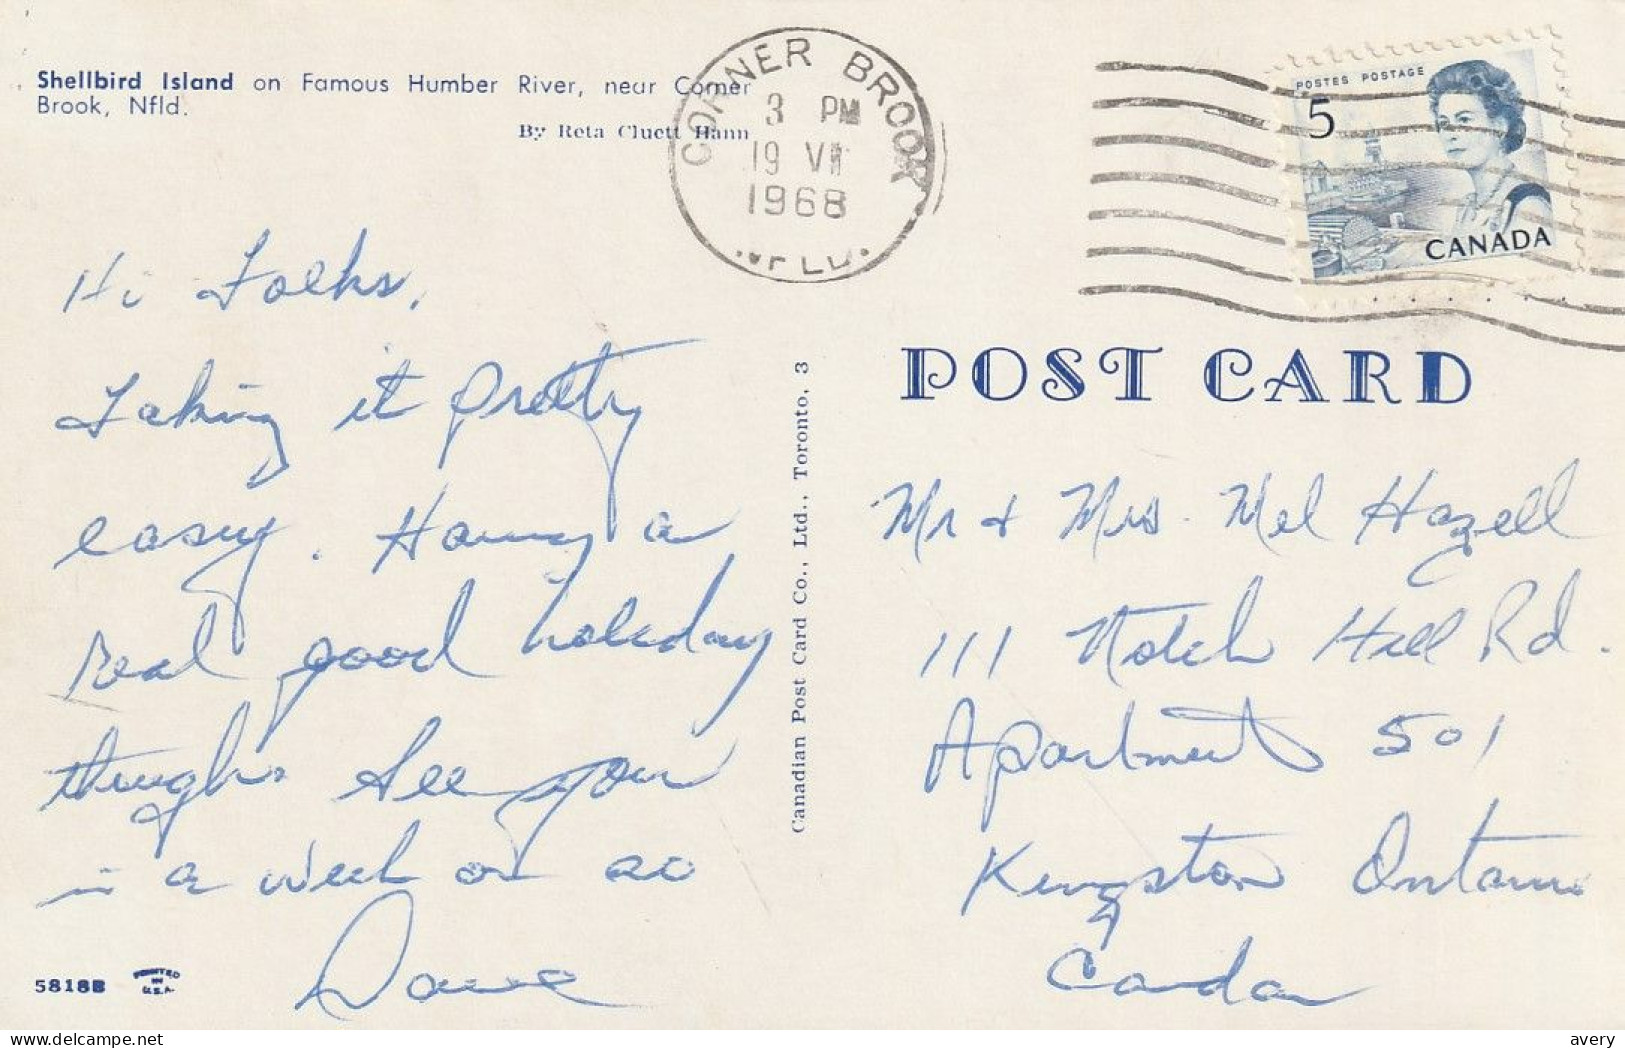 Shellbird Island on Famous Humber River, near Corner
Brook, Nfld.
By Reta Cluett Hann
CORNER BROOK
3 PM
19 VII
1968
NFLD.
POSTES POSTAGE
5
CANADA
Hi Folks,
Taking it pretty
easy. Having a
real good holiday
though. See you
in a week or so
Dave
58188
PRINTED
IN
U.S.A.
Canadian Post Card Co., Ltd., Toronto, 3
POST CARD
Mr & Mrs. Mel Hazell
111 Notch Hill Rd.
Apartment 501
Kingston Ontario
Canda
avery